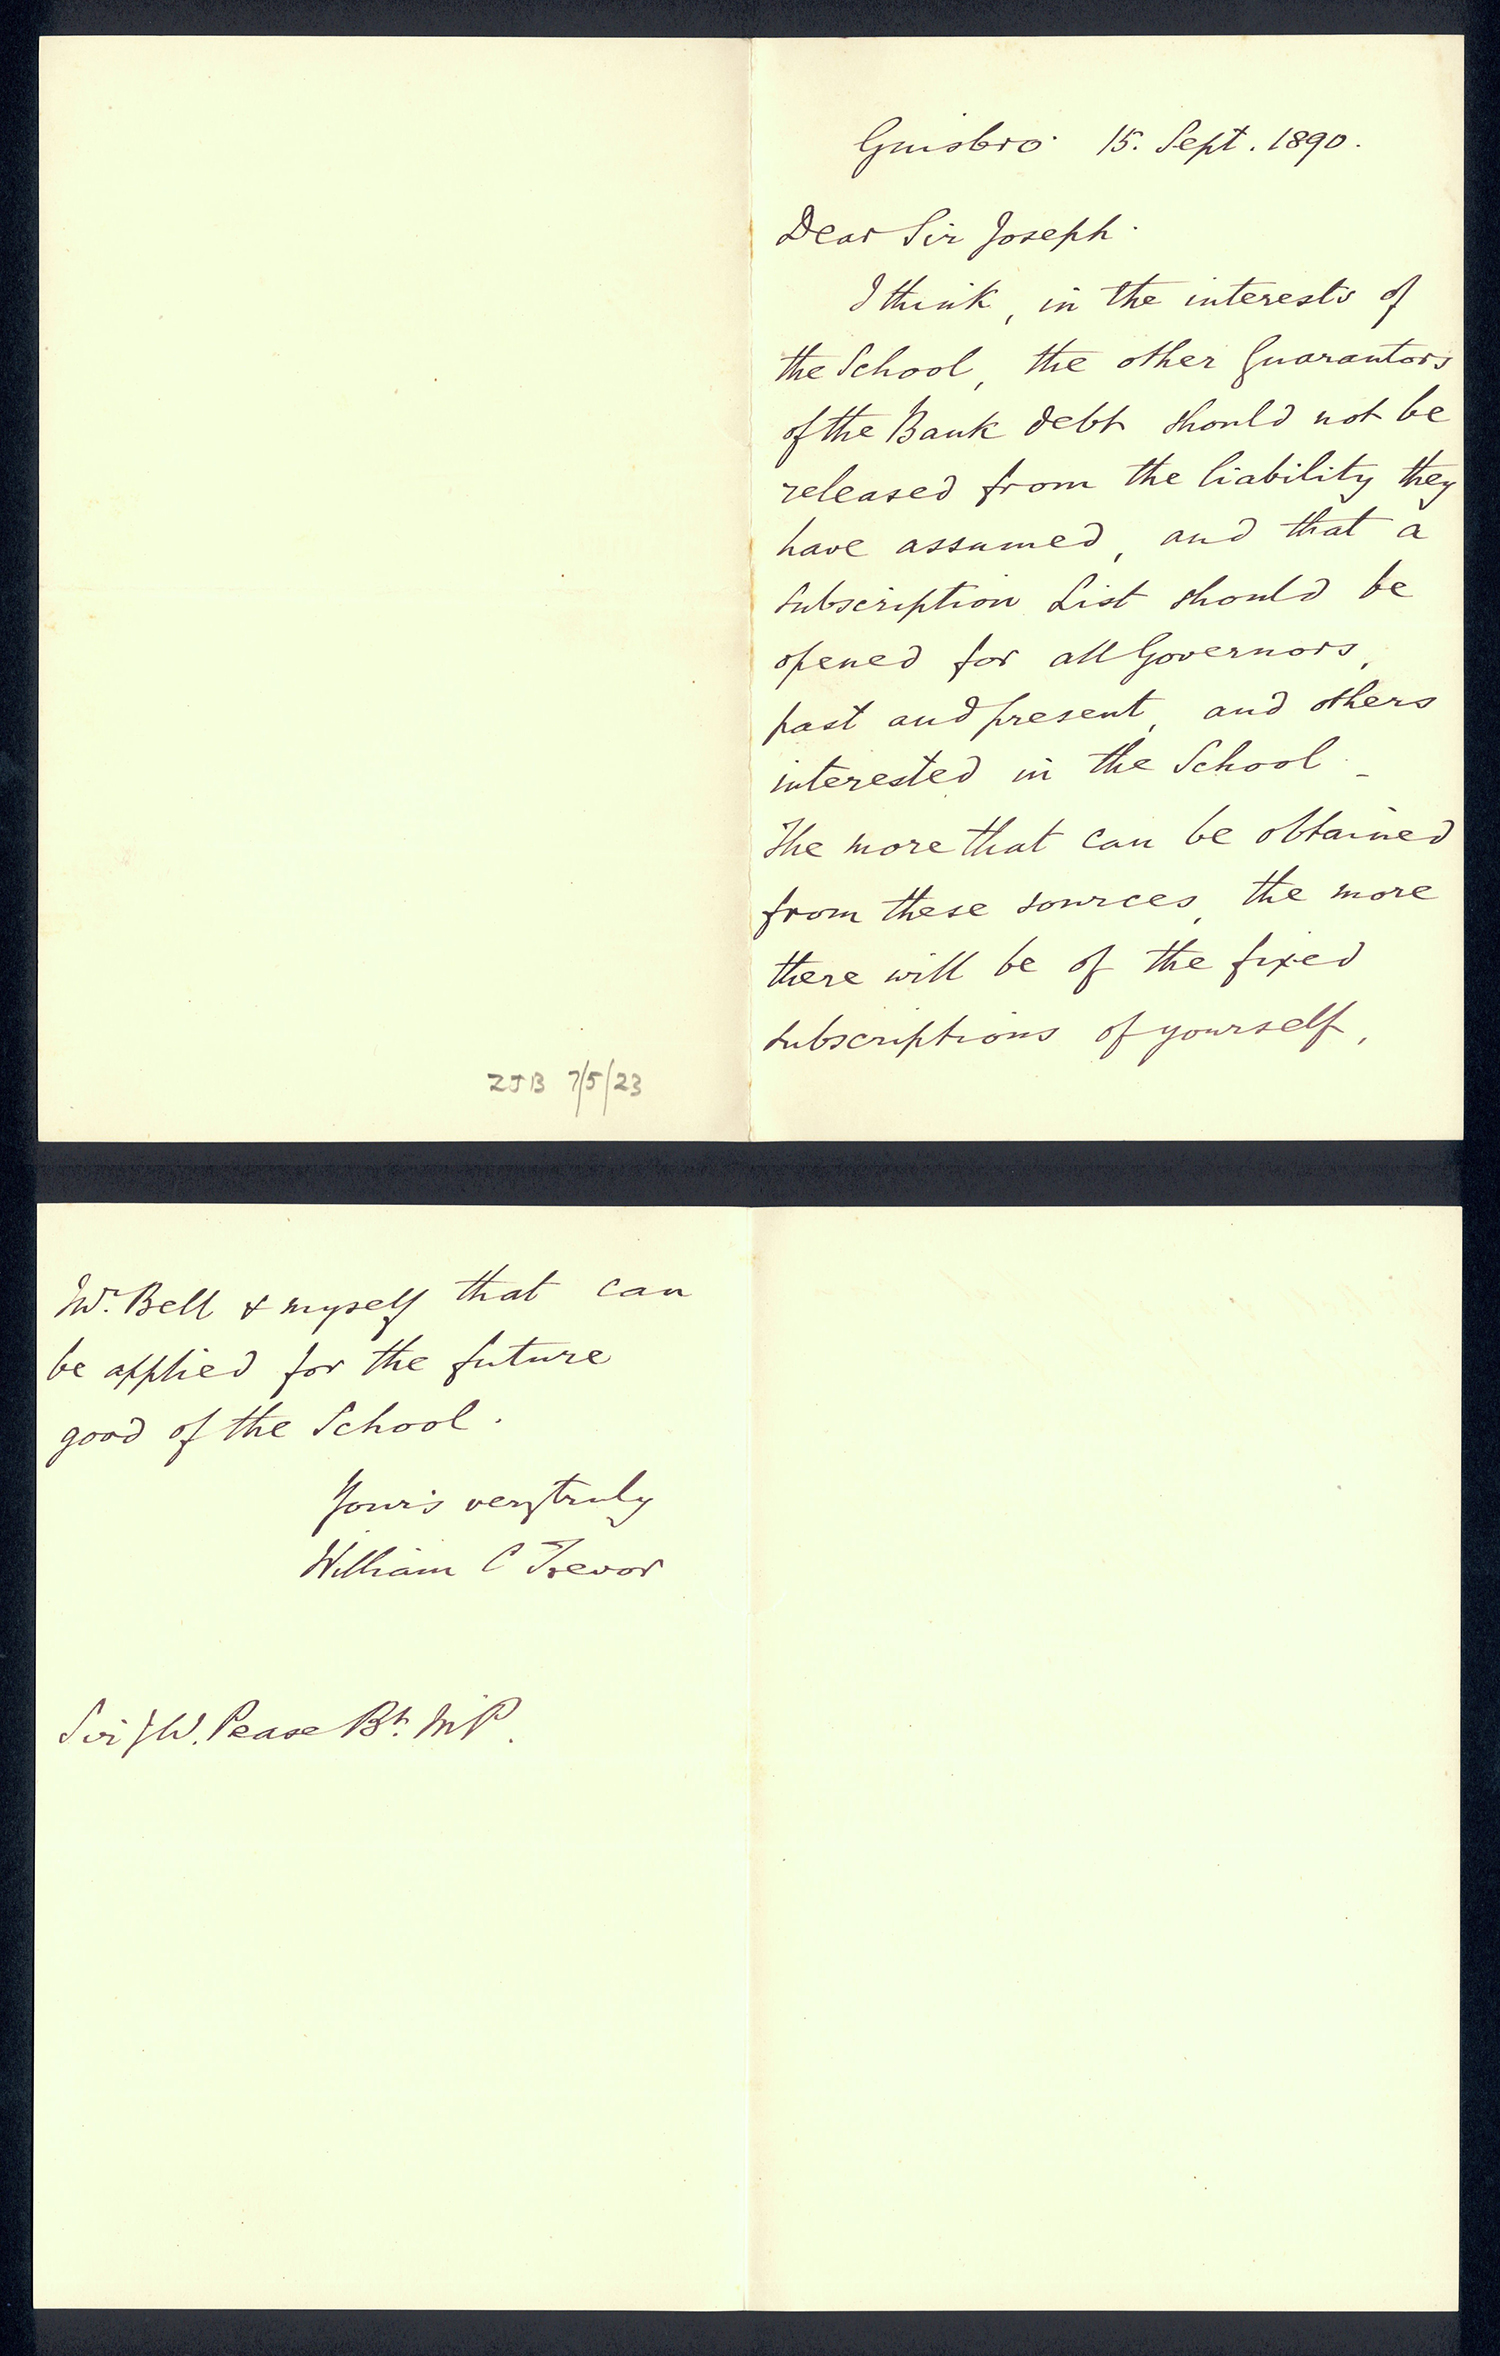 Guisbro' 15. Sept. 1890.
Dear Sir Joseph.
I think, in the interests of
the School, the other Guarantors
of the Bank debt should not be
released from the liability they
have assumed, and that a
subscription List should be
opened for all Governors,
past and present, and others
interested in the School -
The more that can be obtained
from these sources, the more
there will be of the fixed
subscriptions of yourself,
ZJB 7/5/23
Mr. Bell & myself that can
be applied for the future
good of the School.
Yours very truly
William C Trevor
Sir J W. Pease Bt. MP.